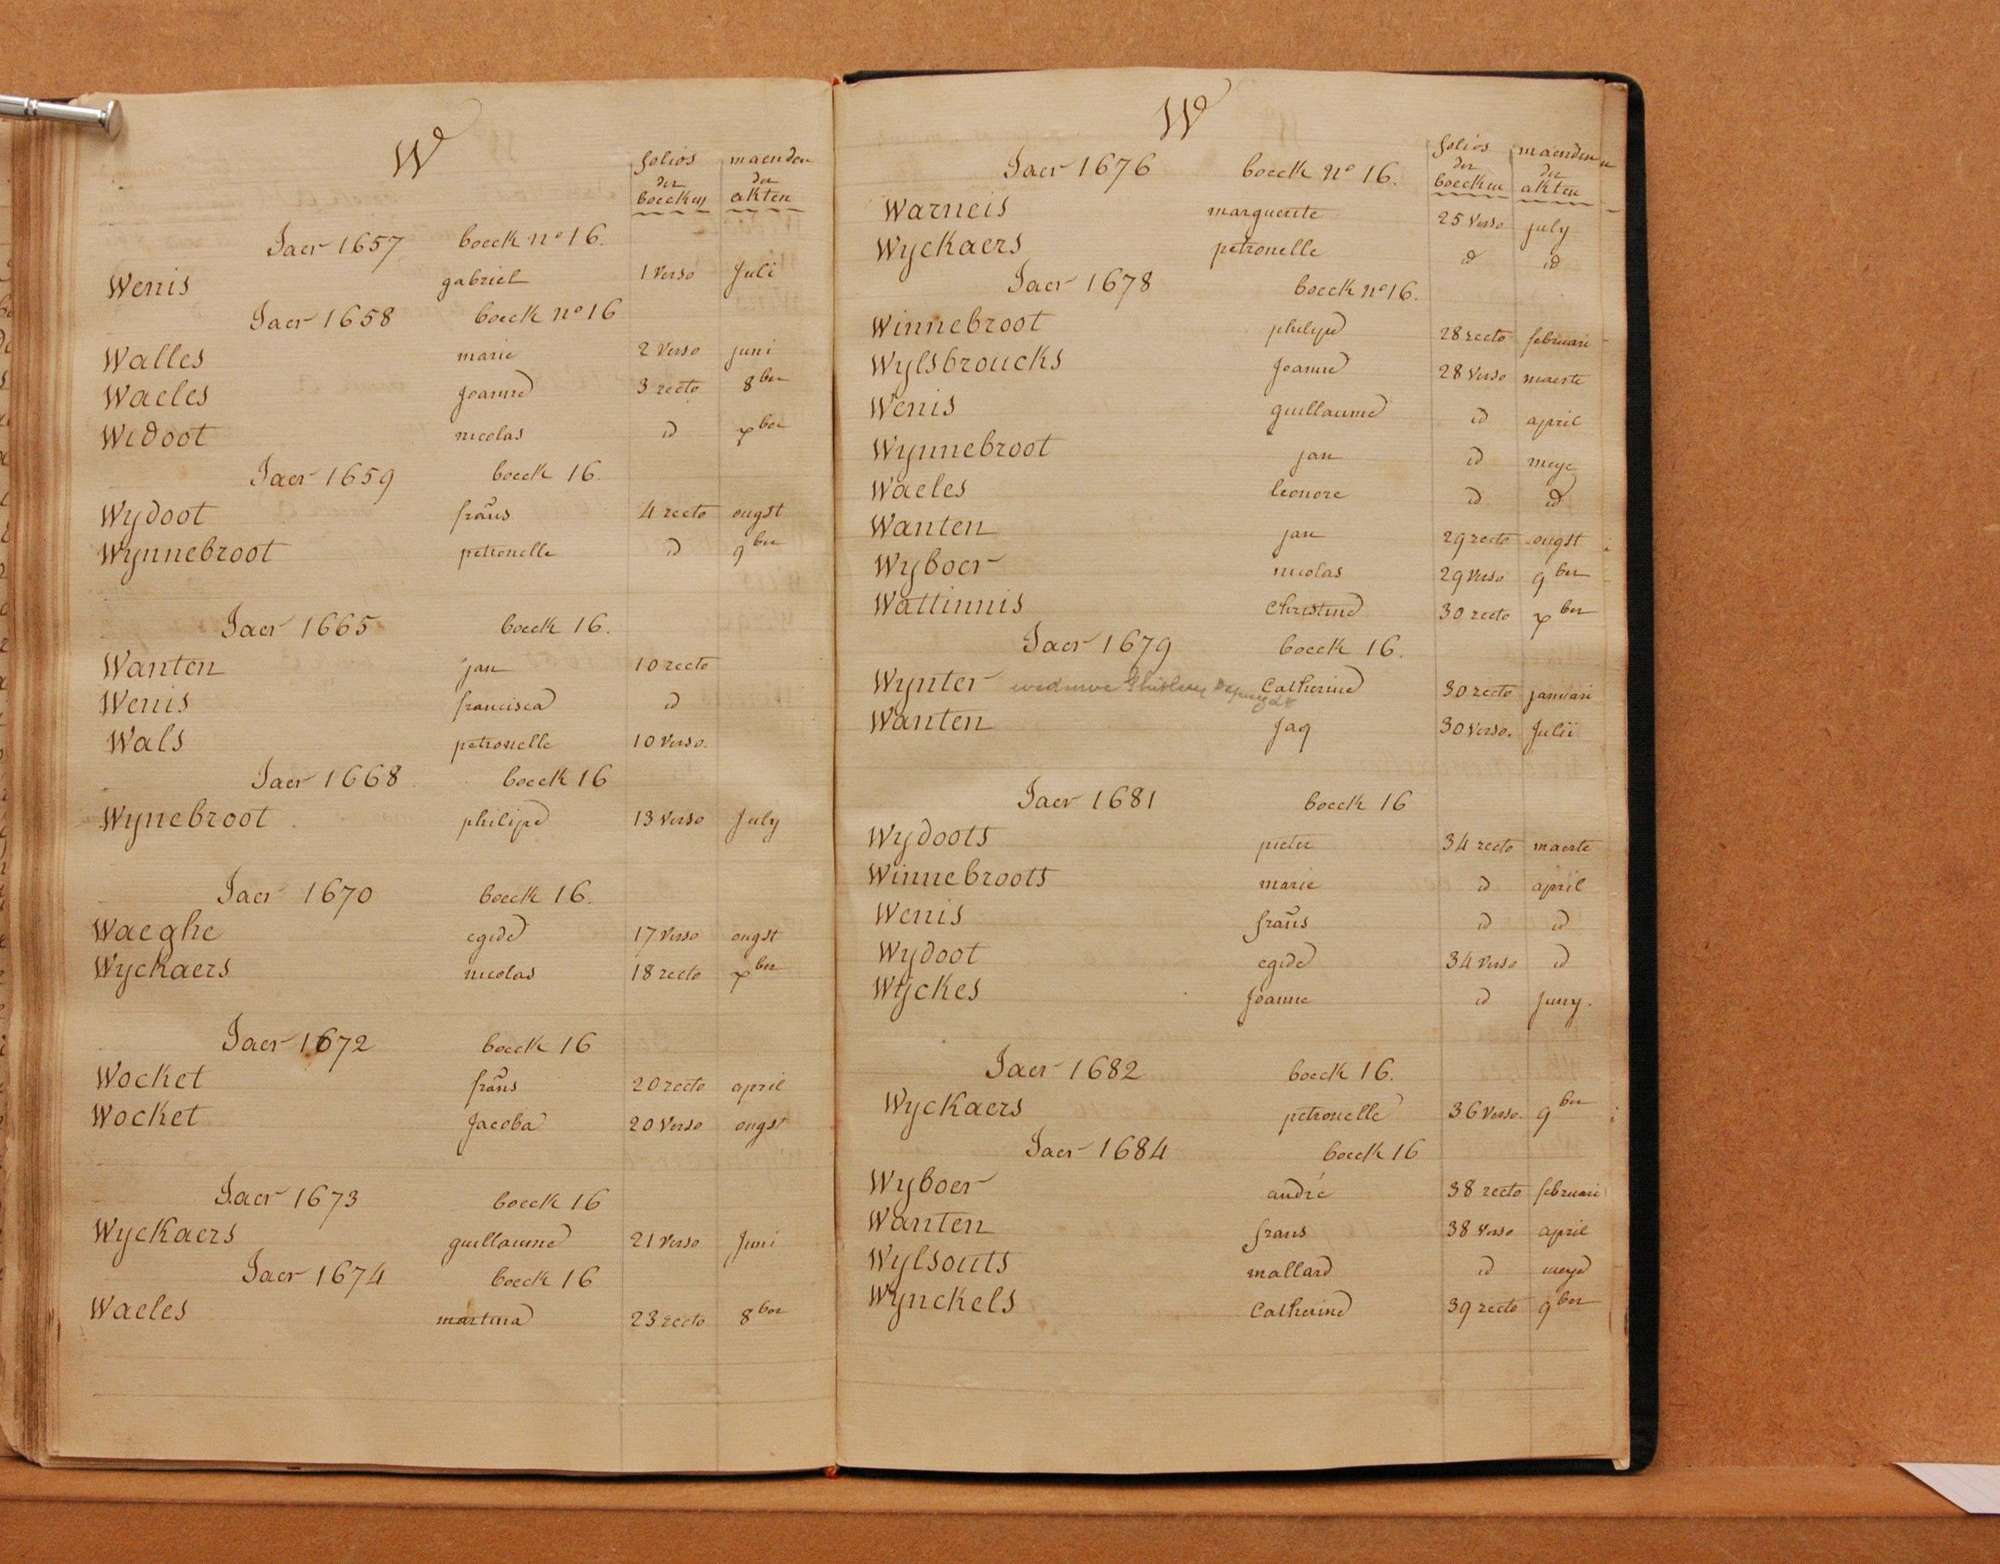 W
folios maenden
der der
boecken akten
Jaer 1657 boeck no 16.
Wenis gabriel 1 verso Juli
Jaer 1658 boeck no 16
Walles marie 2 verso juni
Waeles Joanne 3 recto 8ber
Widoot nicolas id xber
Jaer 1659 boeck 16.
Wydoot frañs 4 recto ougst
Wynnebroot petronelle id 9ber
Jaer 1665 boeck 16.
Wanten jan 10 recto
Wenis francisca id
Wals petronelle 10 verso.
Jaer 1668 boeck 16
Wynebroot philipe 13 verso July
Jaer 1670 boeck 16.
Waeghe egide 17 verso ougst
Wyckaers nicolas 18 recto xber
Jaer 1672 boeck 16
Wocket frañs 20 recto april
Wocket Jacoba 20 verso ougst
Jaer 1673 boeck 16
Wyckaers guillaume 21 verso Juni
Jaer 1674 boeck 16
Waeles martina 23 recto 8ber
W
folios maenden
der der
boecken akten
Jaer 1676 boeck no 16.
Warneis marguerite 25 verso july
Wyckaers petronelle id id
Jaer 1678 boeck no 16.
Winnebroot philipe 28 recto februari
Wylsbroucks Joanne 28 verso maerte
Wenis guillaume id april
Wynnebroot jan id meye
Waeles leonore id id
Wanten jan 29 recto ougst
Wyboer nicolas 29 verso 9ber
Wattinnis Christine 30 recto xber
Jaer 1679 boeck 16.
Wynter weduwe Catherine 30 recto januari
Wanten Jaq 30 verso. Julii
Jaer 1681 boeck 16
Wydoots pieter 34 recto maerte
Winnebroots marie id april
Wenis frañs id id
Wydoot egide 34 verso id
Wyckes Joanne id juny.
Jaer 1682 boeck 16.
Wyckaers petronelle 36 verso. 9ber
Jaer 1684 boeck 16
Wyboer andré 38 recto februari
Wanten frans 38 verso april
Wylsouts mallard id meye
Wynckels Catherine 39 recto 9ber